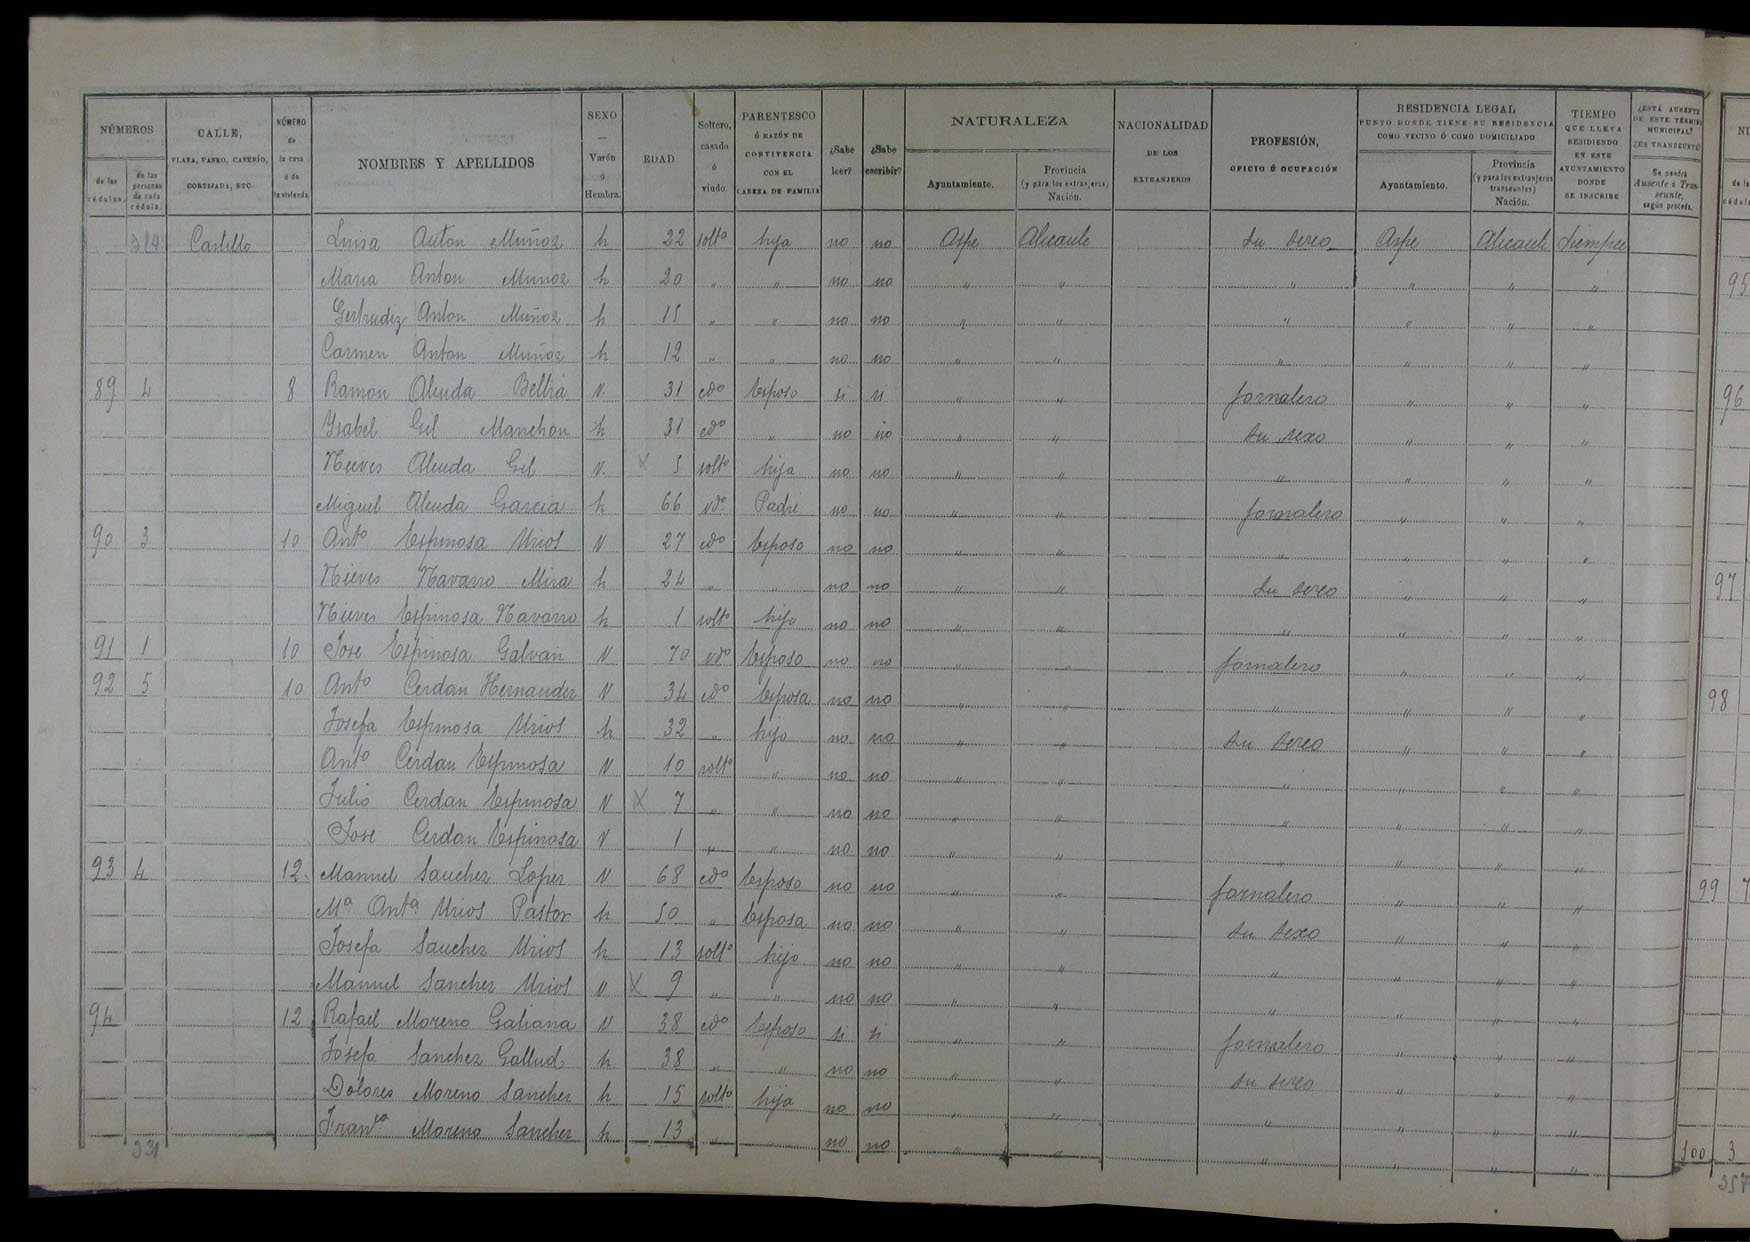 NÚMEROS
de las cédulas.
de las personas de cada cédula.
CALLE,
PLAZA, PASEO, CASERÍO,
CORTIJADA, ETC.
NÚMERO de la casa ó de la vivienda.
NOMBRES Y APELLIDOS
SEXO — Varón ó Hembra.
EDAD
Soltero, casado ó viudo.
PARENTESCO Ó RAZÓN DE CONVIVENCIA CON EL CABEZA DE FAMILIA
¿Sabe leer?
¿Sabe escribir?
NATURALEZA
Ayuntamiento.
Provincia (y para los extranjeros) Nación.
NACIONALIDAD DE LOS EXTRANJEROS
PROFESIÓN, OFICIO Ú OCUPACIÓN
RESIDENCIA LEGAL
PUNTO DONDE TIENE SU RESIDENCIA COMO VECINO Ó COMO DOMICILIADO
Ayuntamiento.
Provincia (y para los extranjeros transeuntes) Nación.
TIEMPO QUE LLEVA RESIDIENDO EN ESTE AYUNTAMIENTO DONDE SE INSCRIBE
¿ESTÁ AUSENTE DE ESTE TÉRMINO MUNICIPAL? ¿ES TRANSEUNTE?
Se pondrá Ausente ó Transeunte, según proceda.
314 Castillo Luisa Anton Muñoz h 22 soltª hija no no Aspe Alicante Su sexo Aspe Alicante Siempre
Maria Anton Muñoz h 20 " " no no " " " " " "
Gertrudiz Anton Muñoz h 15 " " no no " " " " " "
Carmen Anton Muñoz h 12 " " no no " " " " " "
89 4 8 Ramon Alenda Bellia V. 31 cdº Esposo si si " " Jornalero " " "
Ysabel Gil Manchon h 31 cdº " no no " " Su sexo " " "
Nieves Alenda Gil V. X 5 soltº hija no no " " " " " "
Miguel Alenda Garcia h 66 vdº Padre no no " " Jornalero " " "
90 3 10 Antº Espinosa Urios V 27 cdº Esposo no no " " " " " "
Nieves Navarro Mira h 24 " " no no " " Su sexo " " "
Nieves Espinosa Navarro h 1 soltº hijo no no " " " " " "
91 1 10 Jose Espinosa Galvañ V 70 vdº Esposo no no " " Jornalero " " "
92 5 10 Antº Cerdan Hernandez V 34 cdº Esposa no no " " " " " "
Josefa Espinosa Urios h 32 " hijo no no " " Su sexo " " "
Antº Cerdan Espinosa V 10 soltº " no no " " " " " "
Julio Cerdan Espinosa V X 7 " " no no " " " " " "
Jose Cerdan Espinosa V 1 " " no no " " " " " "
93 4 12 Manuel Sanchez Lopez V 68 cdº Esposo no no " " Jornalero " " "
Mª Antª Urios Pastor h 50 " Esposa no no " " Su sexo " " "
Josefa Sanchez Urios h 13 soltº hijo no no " " " " " "
Manuel Sanchez Urios V X 9 " " no no " " " " " "
94 12 Rafael Moreno Galiana V 38 cdº Esposo si si " " Jornalero " " "
Josefa Sanchez Gallud h 38 " " no no " " Su sexo " " "
Dolores Moreno Sanchez h 15 soltº hija no no " " " " " "
Franca Moreno Sanchez h 13 " " no no " " " " " "
331
95
96
97
98
99 7
100 3